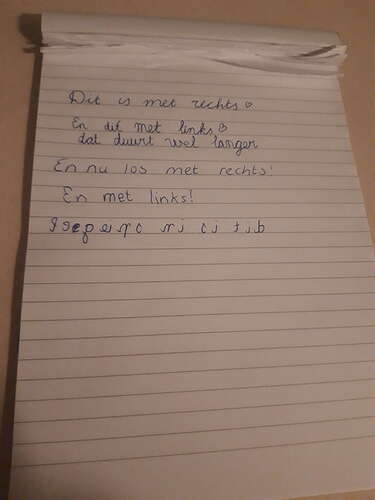 Dit is met rechts
En dit met links,
dat duurt wel langer
En nu los met rechts!
En met links!